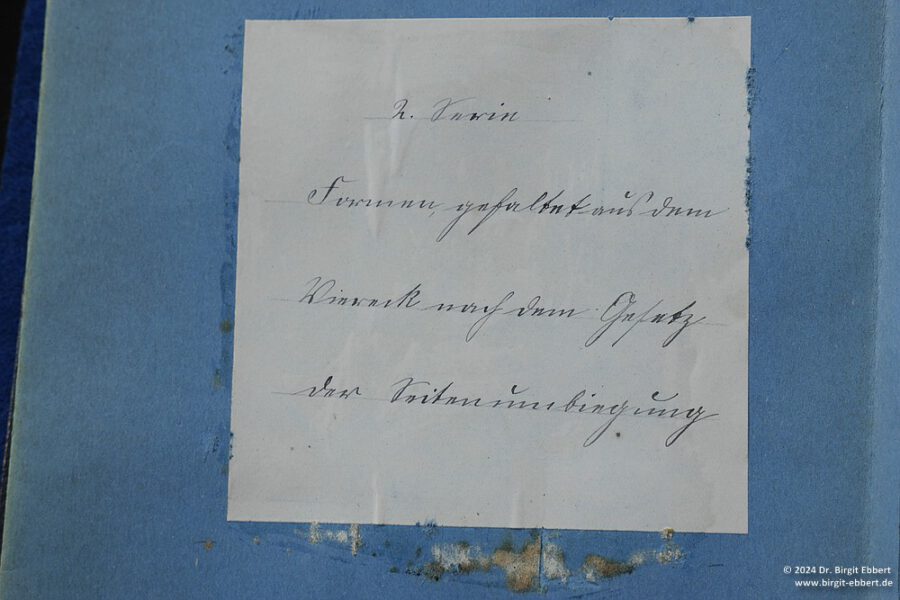 2. Serie
Formen, gefaltet aus dem
Viereck nach dem Gesetz
der Seitenumbiegung
© 2024 Dr. Birgit Ebbert
www.birgit-ebbert.de